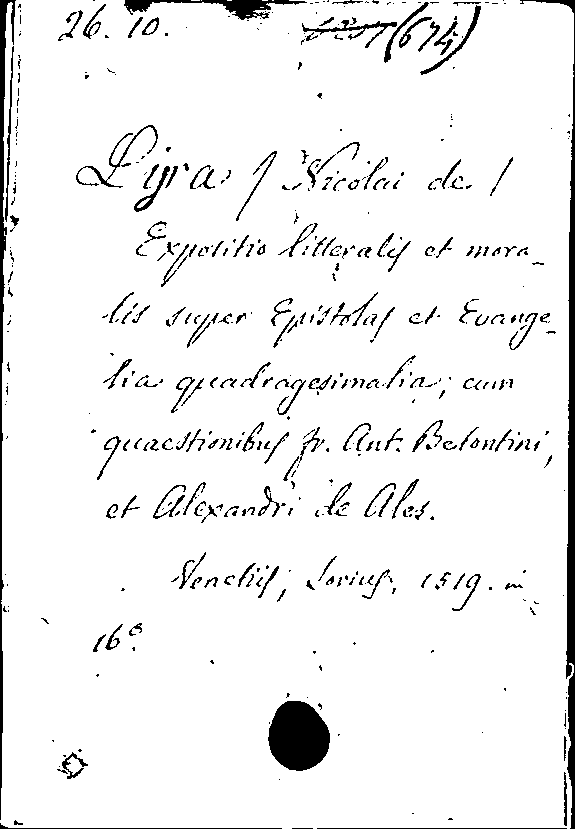 26. 10. (674)
Lyra / Nicolai de /
Expositio litteralis et mora-
lis super Epistolas et Evange-
lia quadragesimalia; cum
quaestionibus fr. Ant. Betontini,
et Alexandri de Ales.
Venetiis, 1519. in
16°.